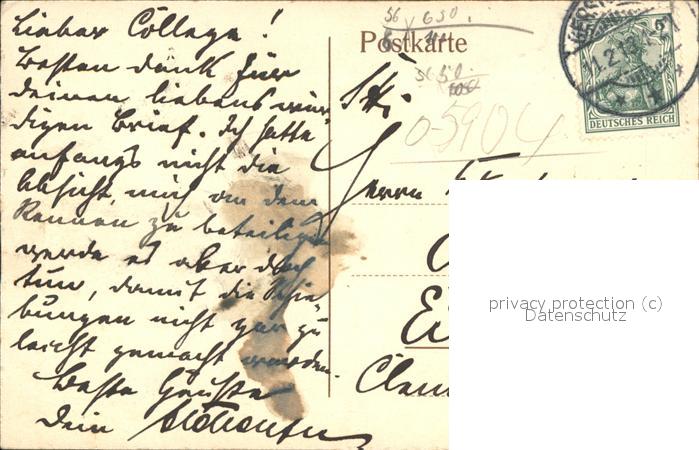 Lieber College!
Besten Dank für
deinen liebenswür-
digen Brief. Ich hatte
anfangs nicht die
Absicht, mich an dem
Rennen zu beteiligen
werde es aber doch
tun, damit die Schie-
bungen nicht gar zu
leicht gemacht werden.
Beste Grüße
Dein
56 650.
Postkarte
5650.
0-5904
Herrn
DEUTSCHES REICH
5
privacy protection (c)
Datenschutz